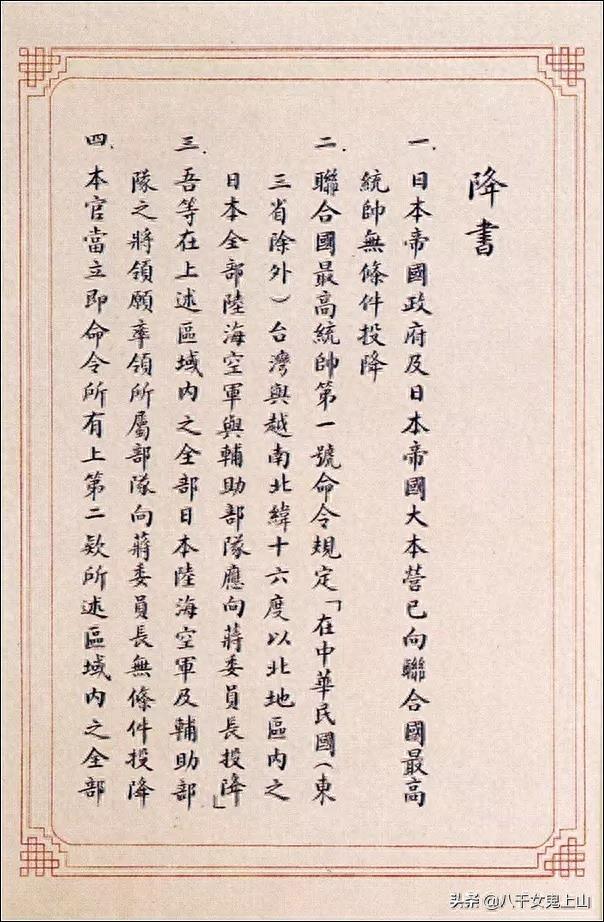 降書
一.日本帝國政府及日本帝國大本營已向聯合國最高
統帥無條件投降
二.聯合國最高統帥第一號命令規定「在中華民國(東
三省除外)台灣與越南北緯十六度以北地區內之
日本全部陸海空軍與輔助部隊應向蔣委員長投降」
三.吾等在上述區域內之全部日本陸海空軍及輔助部
隊之將領願率領所屬部隊向蔣委員長無條件投降
四.本官當立即命令所有上第二欵所述區域內之全部
头条 @八千女鬼上山